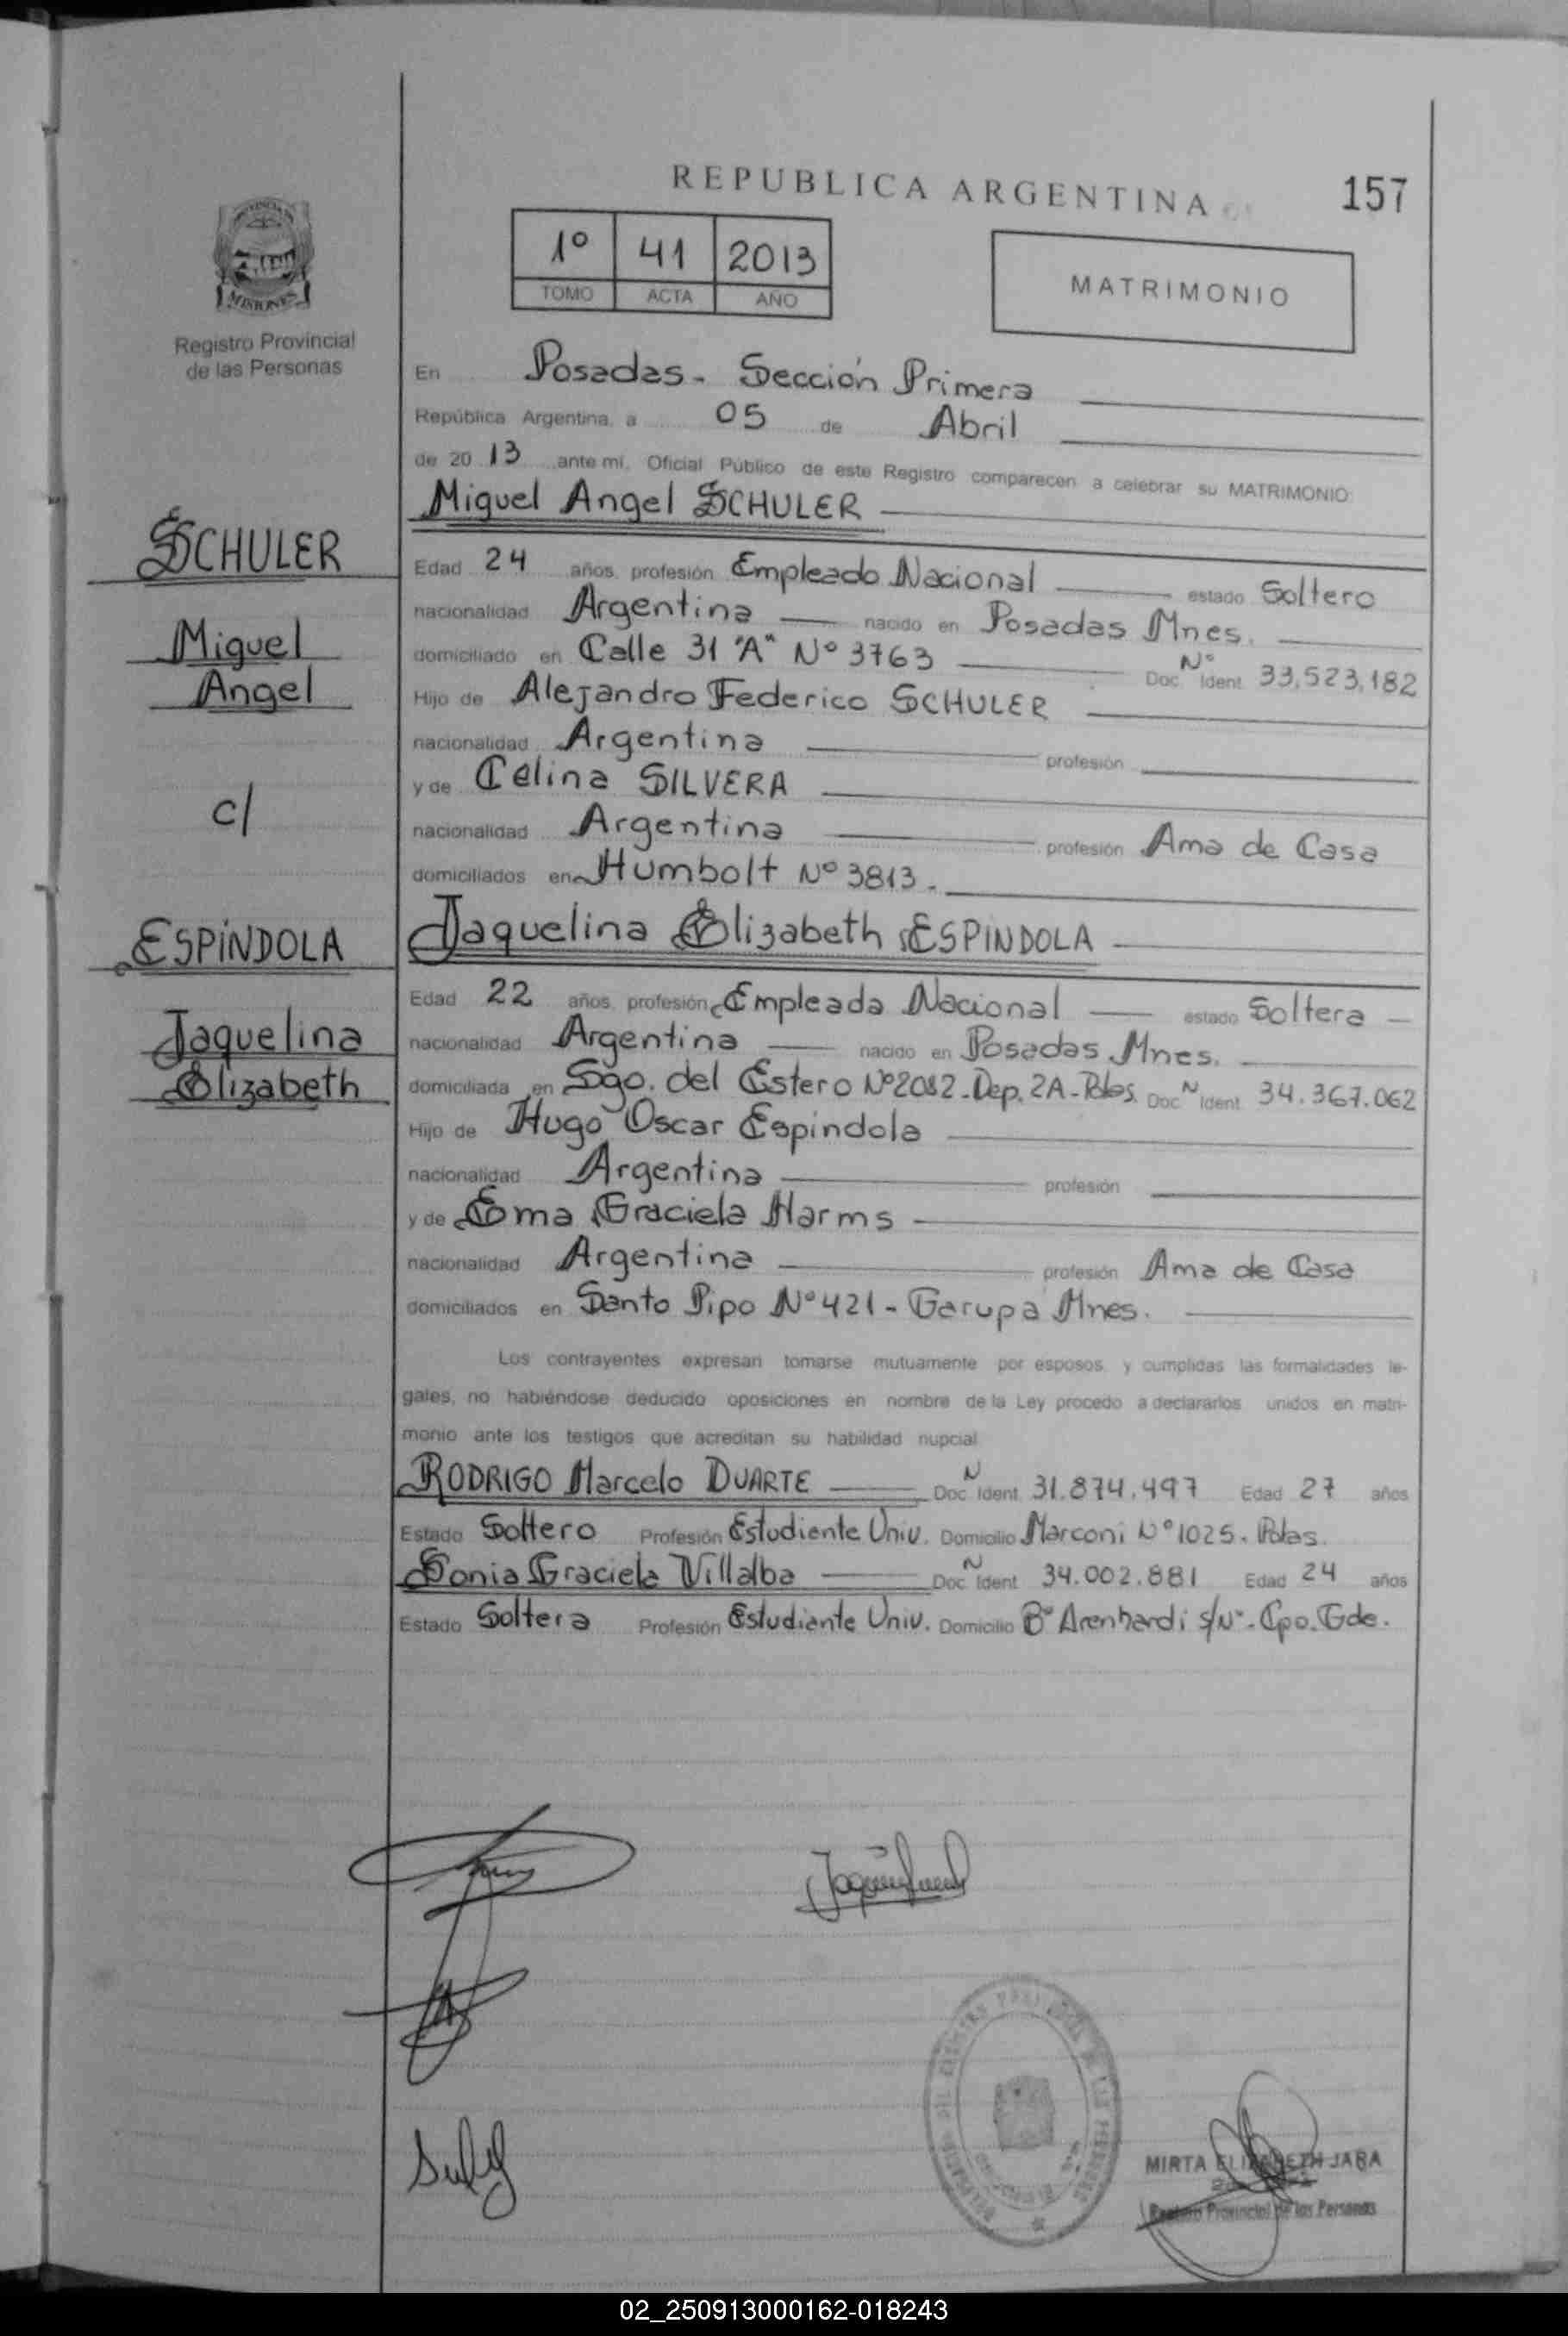 REPUBLICA ARGENTINA
157
1º 41 2013
TOMO ACTA AÑO
MATRIMONIO
MISIONES
Registro Provincial
de las Personas
En Posadas - Sección Primera
República Argentina, a 05 de Abril
de 2013 ante mi, Oficial Público de este Registro comparecen a celebrar su MATRIMONIO:
Miguel Angel SCHULER
SCHULER
Miguel
Angel
c/
ESPINDOLA
Jaquelina
Elizabeth
Edad 24 años, profesión Empleado Nacional estado Soltero
nacionalidad Argentina nacido en Posadas Mnes.
domiciliado en Calle 31 "A" Nº 3763 Doc. Nº Ident. 33.523.182
Hijo de Alejandro Federico SCHULER
nacionalidad Argentina profesión
y de Celina SILVERA
nacionalidad Argentina profesión Ama de Casa
domiciliados en Humbolt Nº 3813.
Jaquelina Elizabeth ESPINDOLA
Edad 22 años, profesión Empleada Nacional estado Soltera
nacionalidad Argentina nacido en Posadas Mnes.
domiciliada en Sgo. del Estero Nº 2082 - Dep. 2A - Pdas. Doc. N Ident. 34.367.062
Hijo de Hugo Oscar Espindola
nacionalidad Argentina profesión
y de Ema Graciela Harms
nacionalidad Argentina profesión Ama de Casa
domiciliados en Santo Pipo Nº 421 - Garupa Mnes.
Los contrayentes expresan tomarse mutuamente por esposos, y cumplidas las formalidades le-
gales, no habiéndose deducido oposiciones en nombre de la Ley procedo a declararlos unidos en matri-
monio ante los testigos que acreditan su habilidad nupcial
RODRIGO Marcelo DUARTE Doc. N Ident. 31.874.497 Edad 27 años
Estado Soltero Profesión Estudiente Univ. Domicilio Marconi Nº 1025 - Pdas.
Sonia Graciela Villalba Doc. N Ident. 34.002.881 Edad 24 años
Estado Soltera Profesión Estudiente Univ. Domicilio Bº Arenhardi s/Nº - Cpo. Gde.
MIRTA ELIZABETH JARA
Registro Provincial de las Personas
02_250913000162-018243